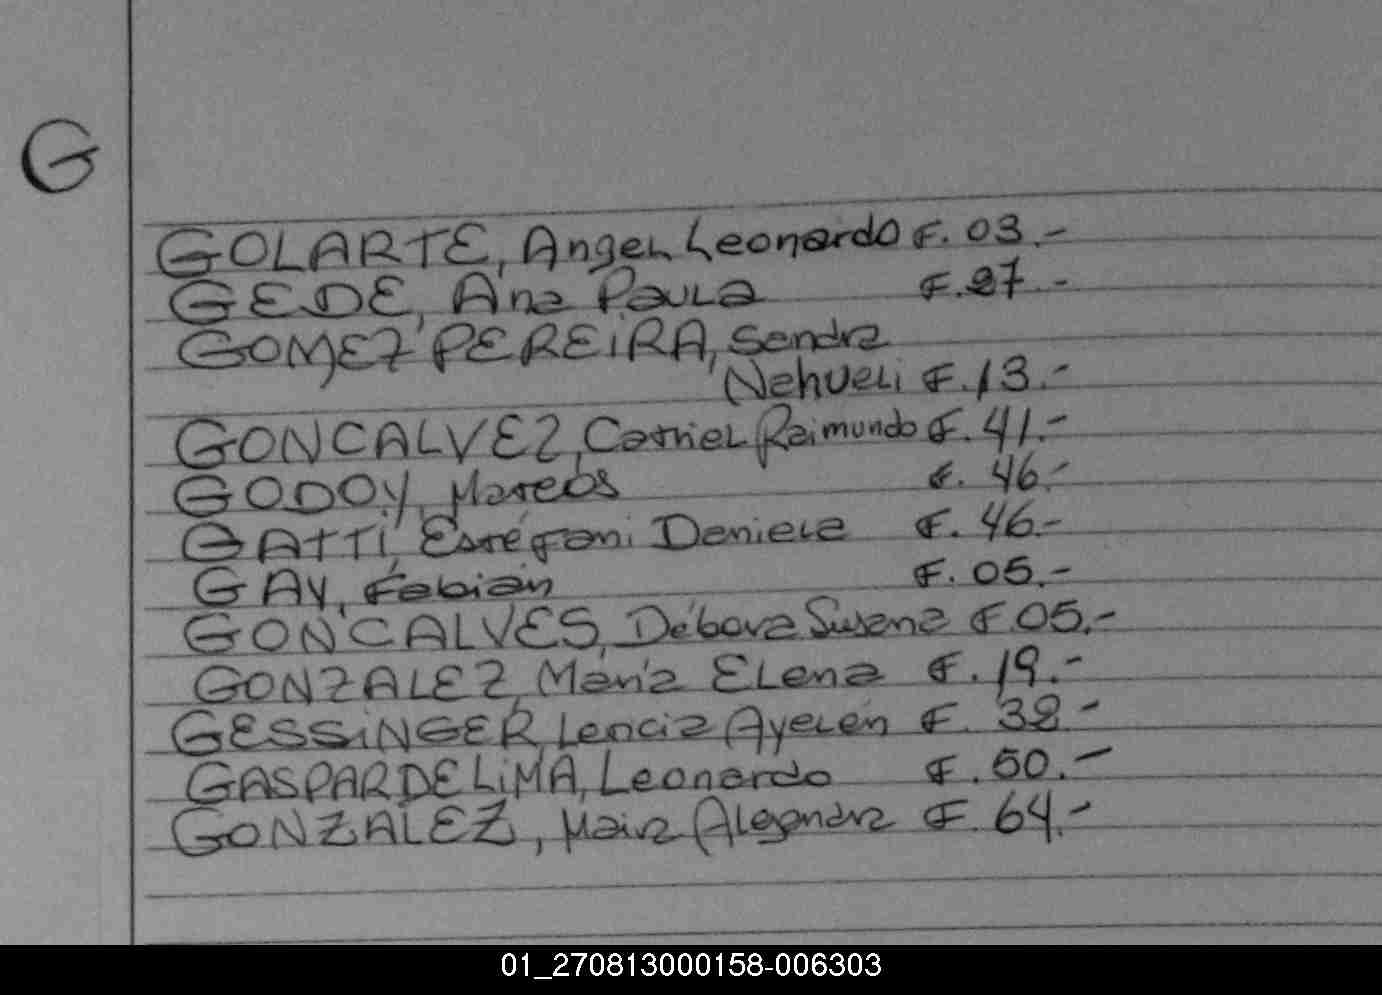 G
GOLARTE, Angel Leonardo F. 03.-
GEDE, Ana Paula F. 27.-
GOMEZ PEREIRA, Sandra
Nahueli F. 13.-
GONCALVEZ, Raimundo F. 41.-
GODOY, Marcos F. 46.-
GATTI, Estéfani Daniela F. 46.-
GAY, Fabián F. 05.-
GONCALVES, Débora Susana F. 05.-
GONZALEZ, María Elena F. 19.-
GESSiNGER, Ayelén F. 38.-
GASPARDELiMA, Leonardo F. 50.-
GONZALEZ, Alejandra F. 64.-
01_270813000158-006303